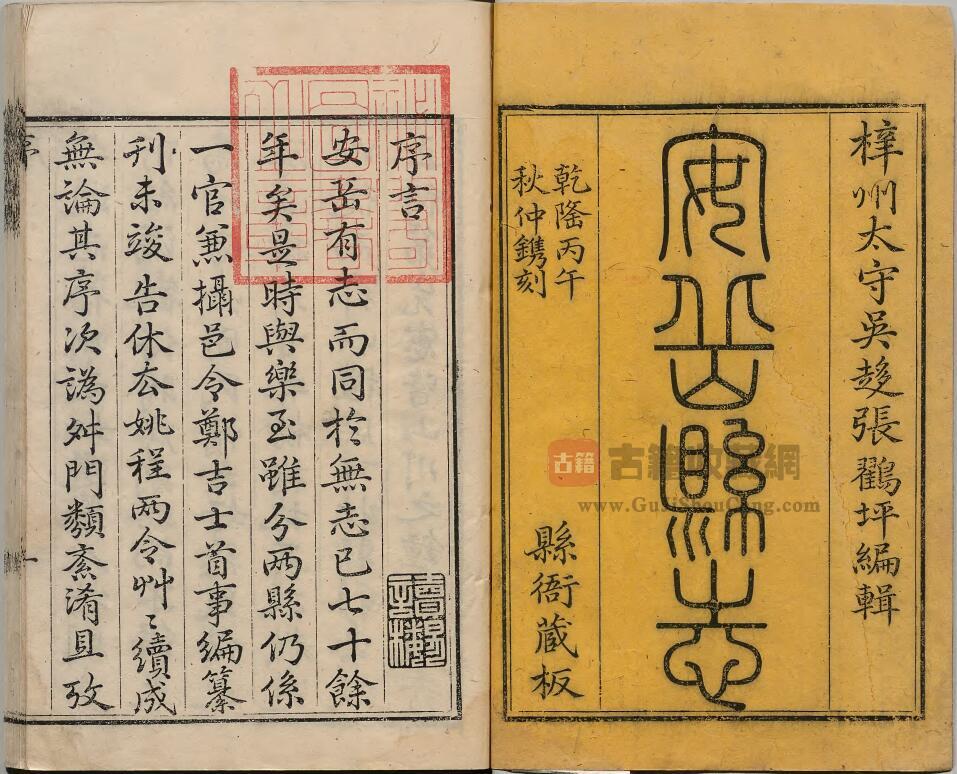 梓州太守吳趍張鸐坪編輯
安岳縣志
乾隆丙午
秋仲鐫刻
縣衙蔵板
序言
安岳有志而同於無志已七十餘
年矣是時與樂至雖分两縣仍係
一官兼攝邑令鄭吉士首事編纂
刋未竣告休去姚程两令艸〻續成
無論其序次譌舛門類紊淆且攷
序
一
古籍
www.GujiShouCang.com